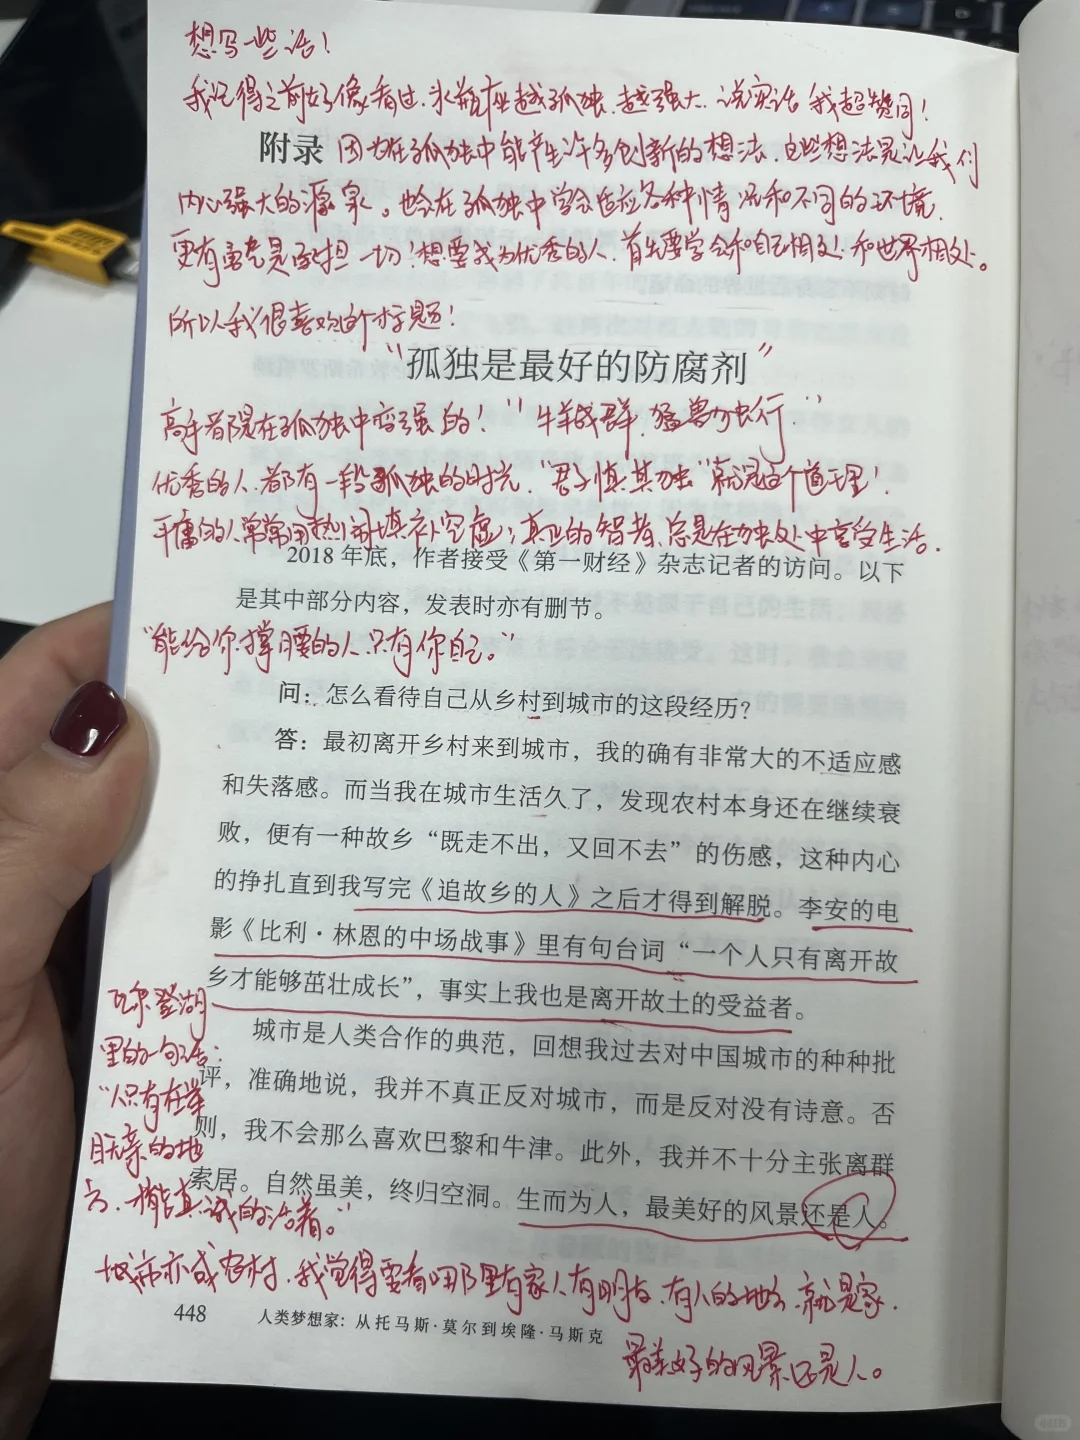 想写一些话！
我记得之前好像看过，水瓶座越孤独，越强大，说实话我超赞同！
附录
因为在孤独中能产生许多创新的想法，这些想法是让我们
内心强大的源泉。也会在孤独中学会适应各种情况和不同的环境，
更有勇气是承担一切！想要成为优秀的人，首先要学会和自己相处和世界相处。
所以我很喜欢的个标题！
“孤独是最好的防腐剂”
高手都是在孤独中变强的！“牛羊成群，猛兽独行”
优秀的人，都有一段孤独的时光，“君子慎其独”就是这个道理！
平庸的人常常用热闹填补空虚；真正的智者，总是在独处中享受生活．
2018 年底，作者接受《第一财经》杂志记者的访问。以下
是其中部分内容，发表时亦有删节。
“能给你撑腰的人只有你自己。”
问：怎么看待自己从乡村到城市的这段经历？
答：最初离开乡村来到城市，我的确有非常大的不适应感
和失落感。而当我在城市生活久了，发现农村本身还在继续衰
败，便有一种故乡“既走不出，又回不去”的伤感，这种内心
的挣扎直到我写完《追故乡的人》之后才得到解脱。李安的电
影《比利·林恩的中场战事》里有句台词“一个人只有离开故
乡才能够茁壮成长”，事实上我也是离开故土的受益者。
城市是人类合作的典范，回想我过去对中国城市的种种批
评，准确地说，我并不真正反对城市，而是反对没有诗意。否
则，我不会那么喜欢巴黎和牛津。此外，我并不十分主张离群
索居。自然虽美，终归空洞。生而为人，最美好的风景还是人。
瓦尔登湖
里的一句话：
“人只有在举
目无亲的地
方，才能真诚的活着。”
城市亦或农村，我觉得要看哪里有家人有朋友，有人的地方，就是家．
最美好的风景还是人。
448
人类梦想家：从托马斯·莫尔到埃隆·马斯克